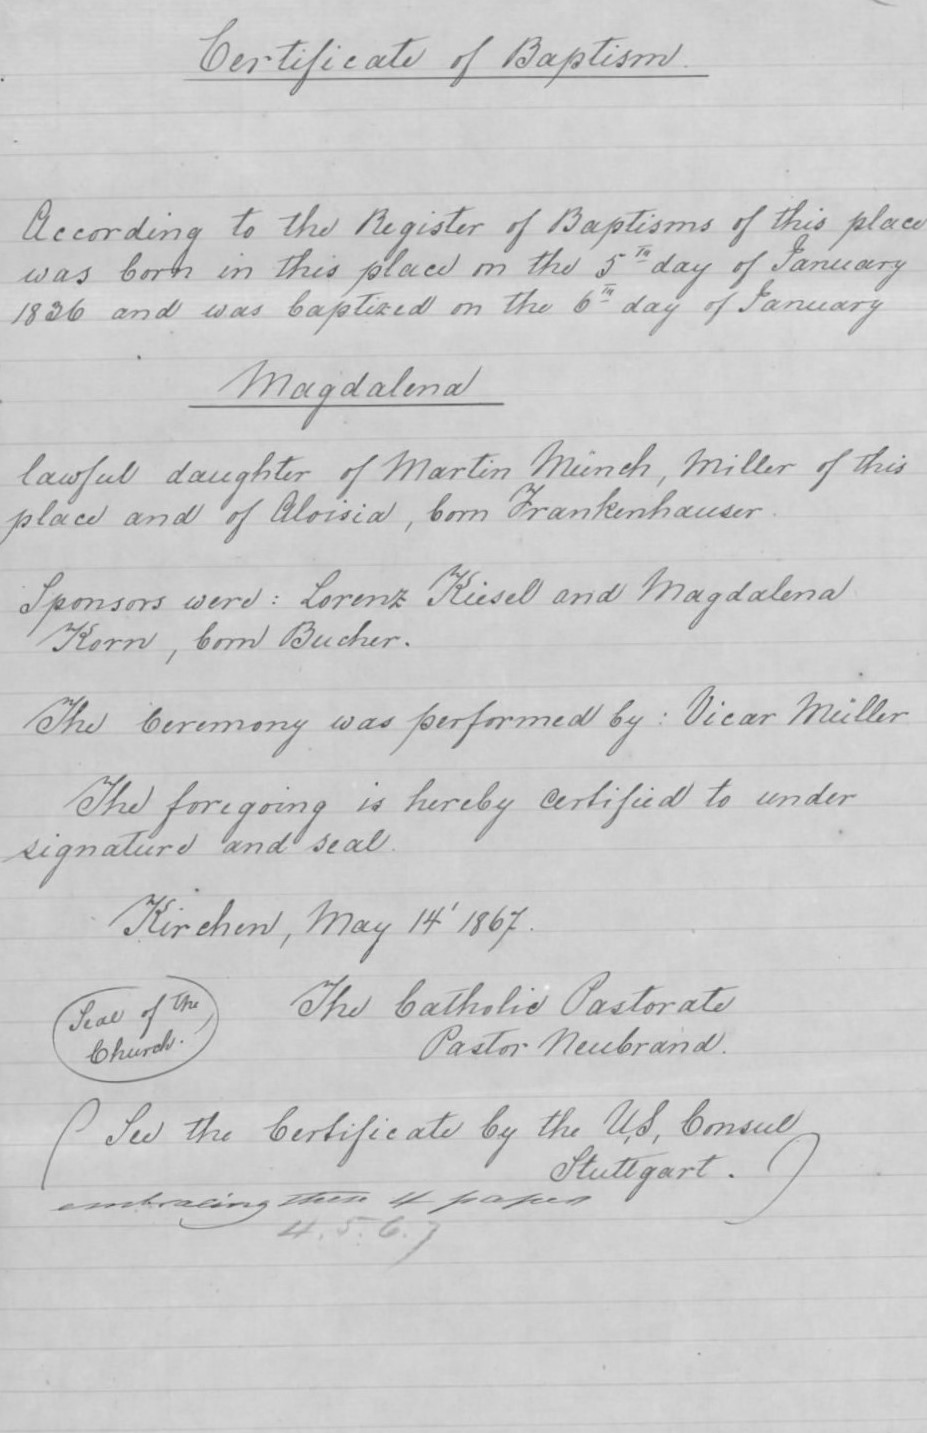 Certificate of Baptism.
According to the Register of Baptisms of this place
was born in this place on the 5th day of January
1836 and was baptized on the 6th day of January
Magdalena
lawful daughter of Martin Münch, Miller of this
place and of Aloisia, born Frankenhauser.
Sponsors were: Lorenz Kiesel and Magdalena
Korn, born Bucher.
The Ceremony was performed by: Vicar Müller
The foregoing is hereby certified to under
signature and seal.
Kirchen, May 14' 1867.
Seal of the
Church.
The Catholic Pastorate
Pastor Neubrand.
(See the Certificate by the U.S. Consul
Stuttgart.)
embracing these 4 papers
4.5.6.7